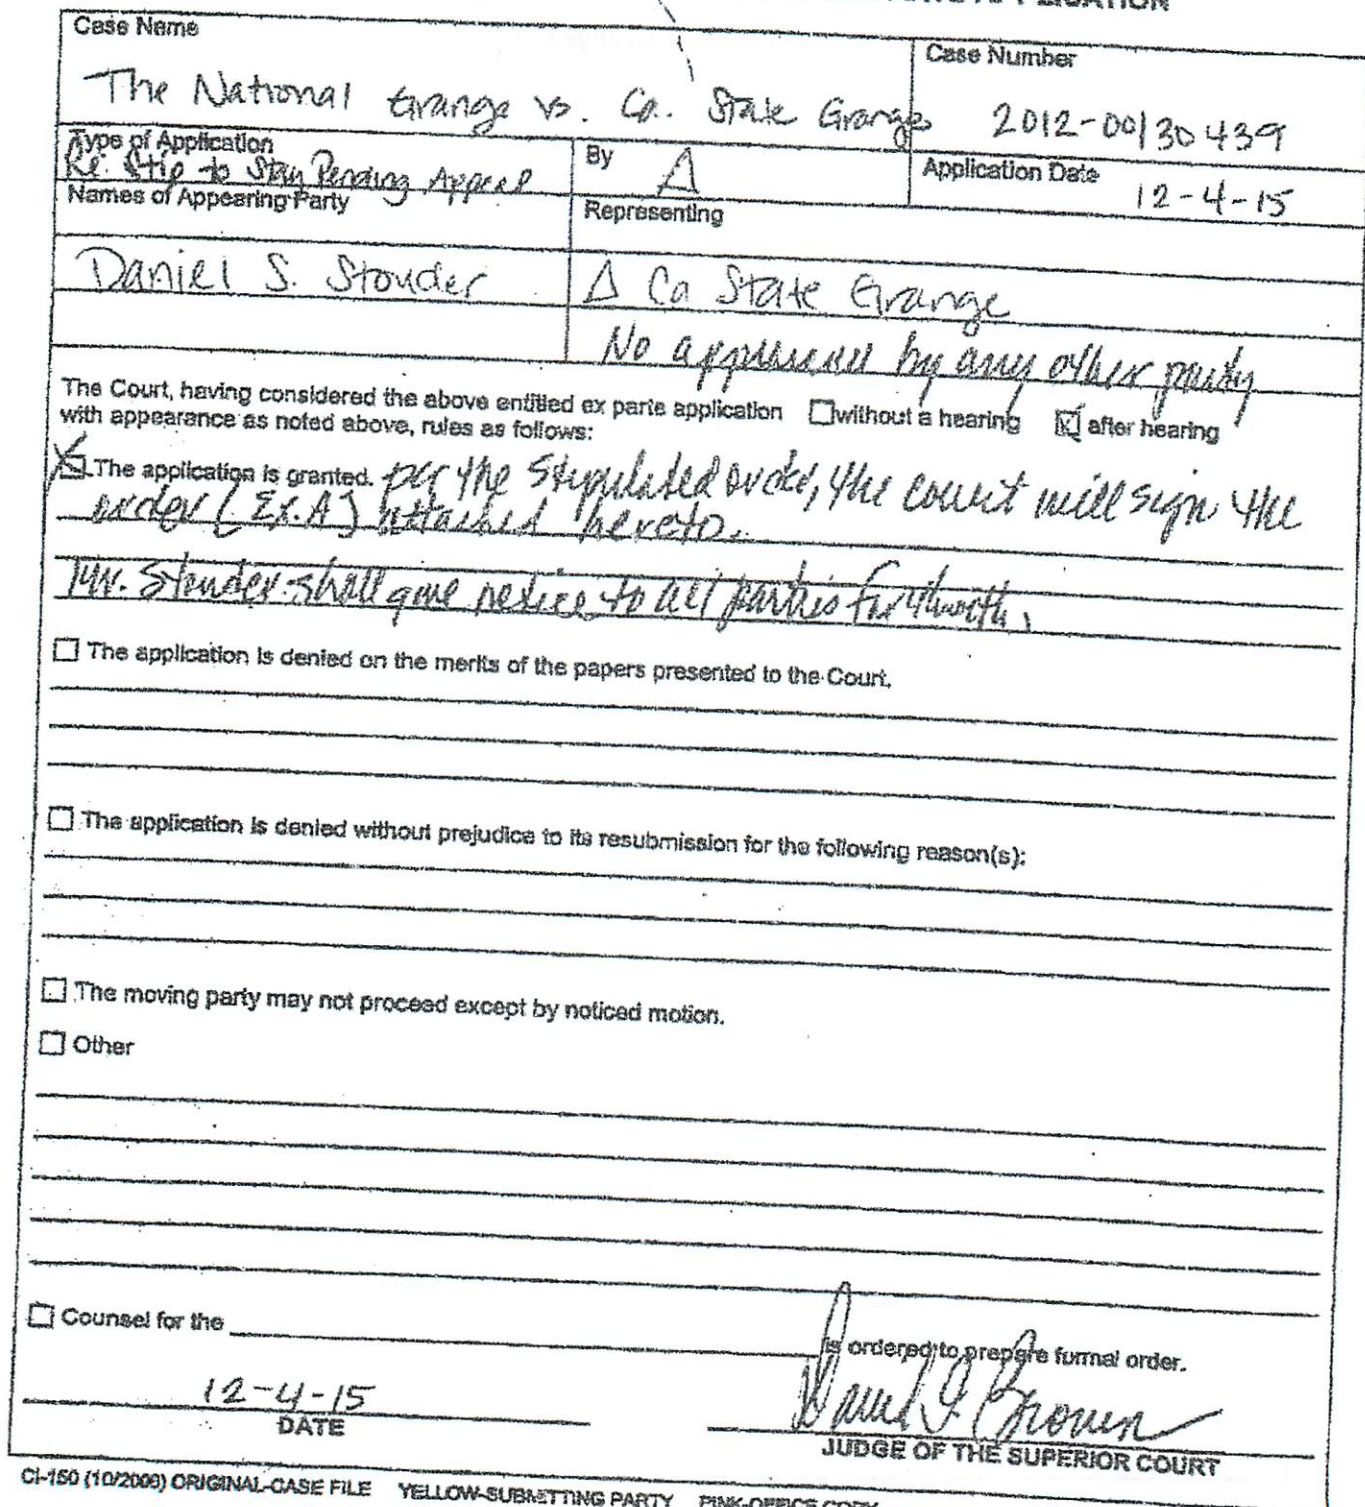 Case Name
Case Number
The National Grange vs. Ca. State Grange
2012-00130439
Type of Application
Re: Stip to Stay Pending Appeal
By Δ
Application Date
12-4-15
Names of Appearing Party
Representing
Daniel S. Stouder
Δ Ca State Grange
No appearance by any other party
The Court, having considered the above entitled ex parte application ☐ without a hearing ☒ after hearing
with appearance as noted above, rules as follows:
☒ The application is granted. per the stipulated order, the court will sign the
order (Ex. A) attached hereto.
Mr. Stouder shall give notice to all parties forthwith.
☐ The application is denied on the merits of the papers presented to the Court.
☐ The application is denied without prejudice to its resubmission for the following reason(s):
☐ The moving party may not proceed except by noticed motion.
☐ Other
☐ Counsel for the is ordered to prepare formal order.
12-4-15
DATE
David I. Brown
JUDGE OF THE SUPERIOR COURT
CI-150 (10/2006) ORIGINAL-CASE FILE YELLOW-SUBMITTING PARTY PINK-OFFICE COPY